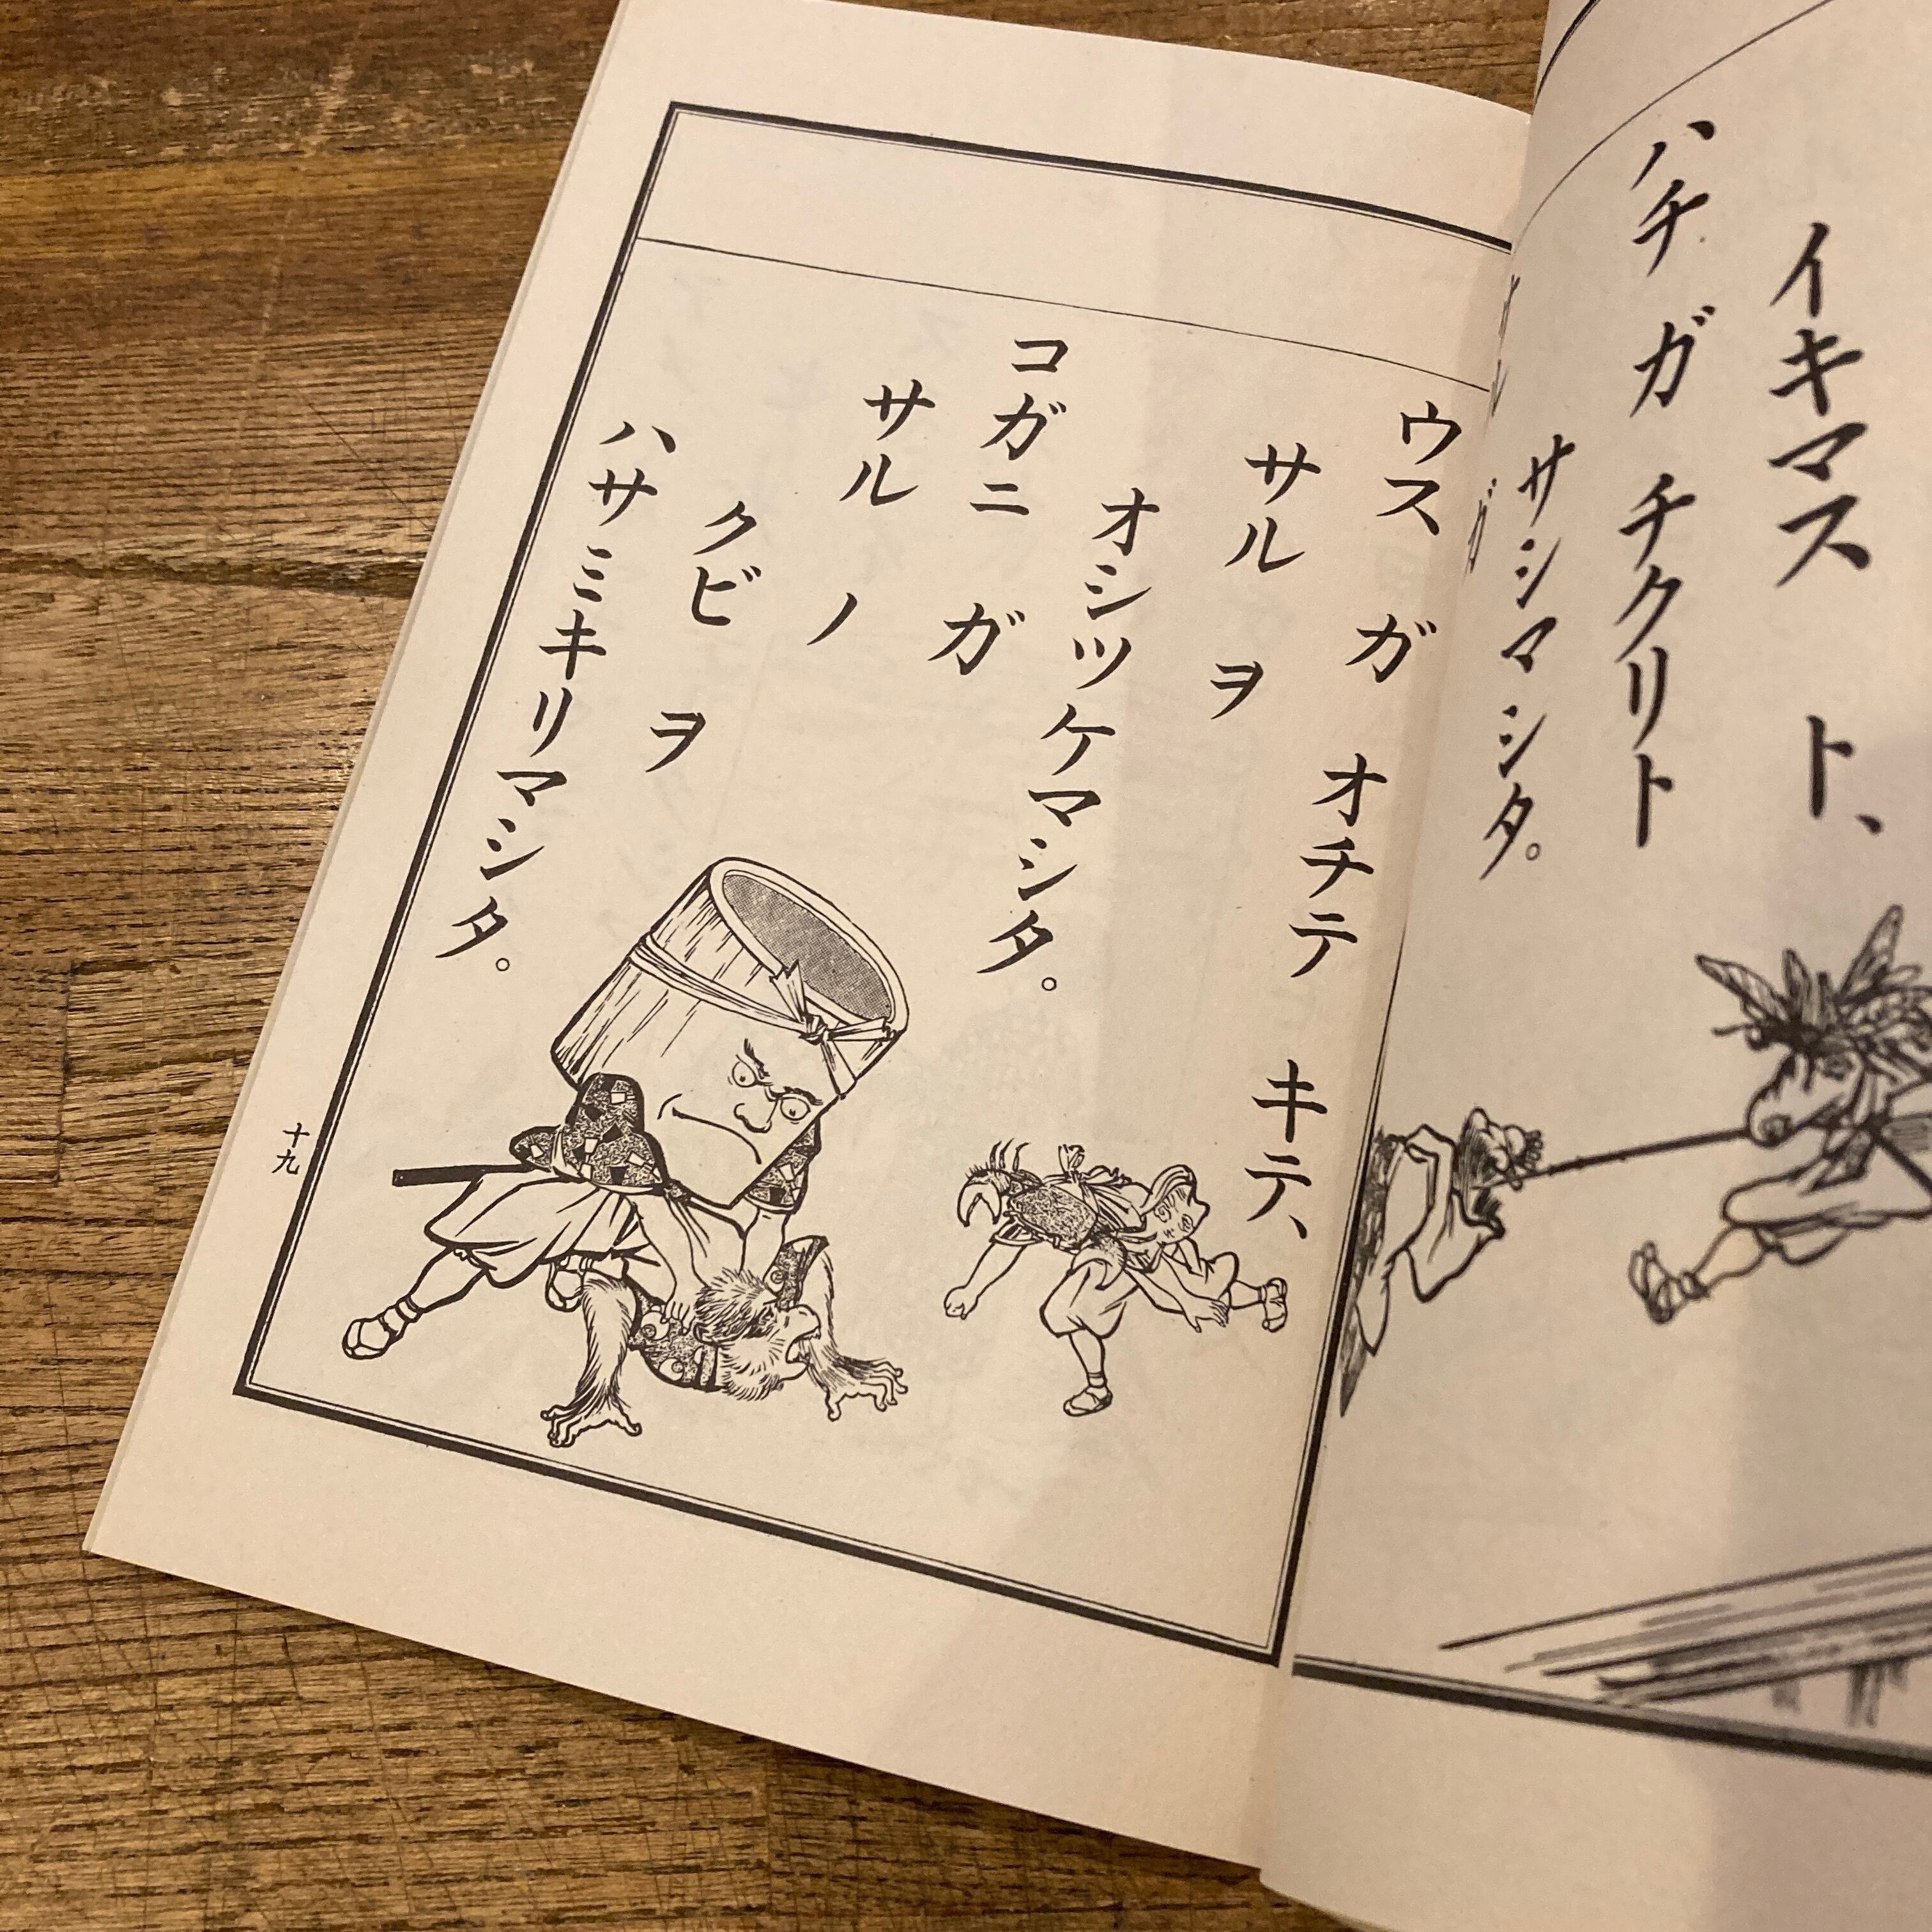 イキマス ト、
ハチ ガ チクリト
サシマシタ。
ウス ガ オチテ キテ、
サル ヲ
オシツケマシタ。
コガニ ガ
サル ノ
クビ ヲ
ハサミキリマシタ。
十九